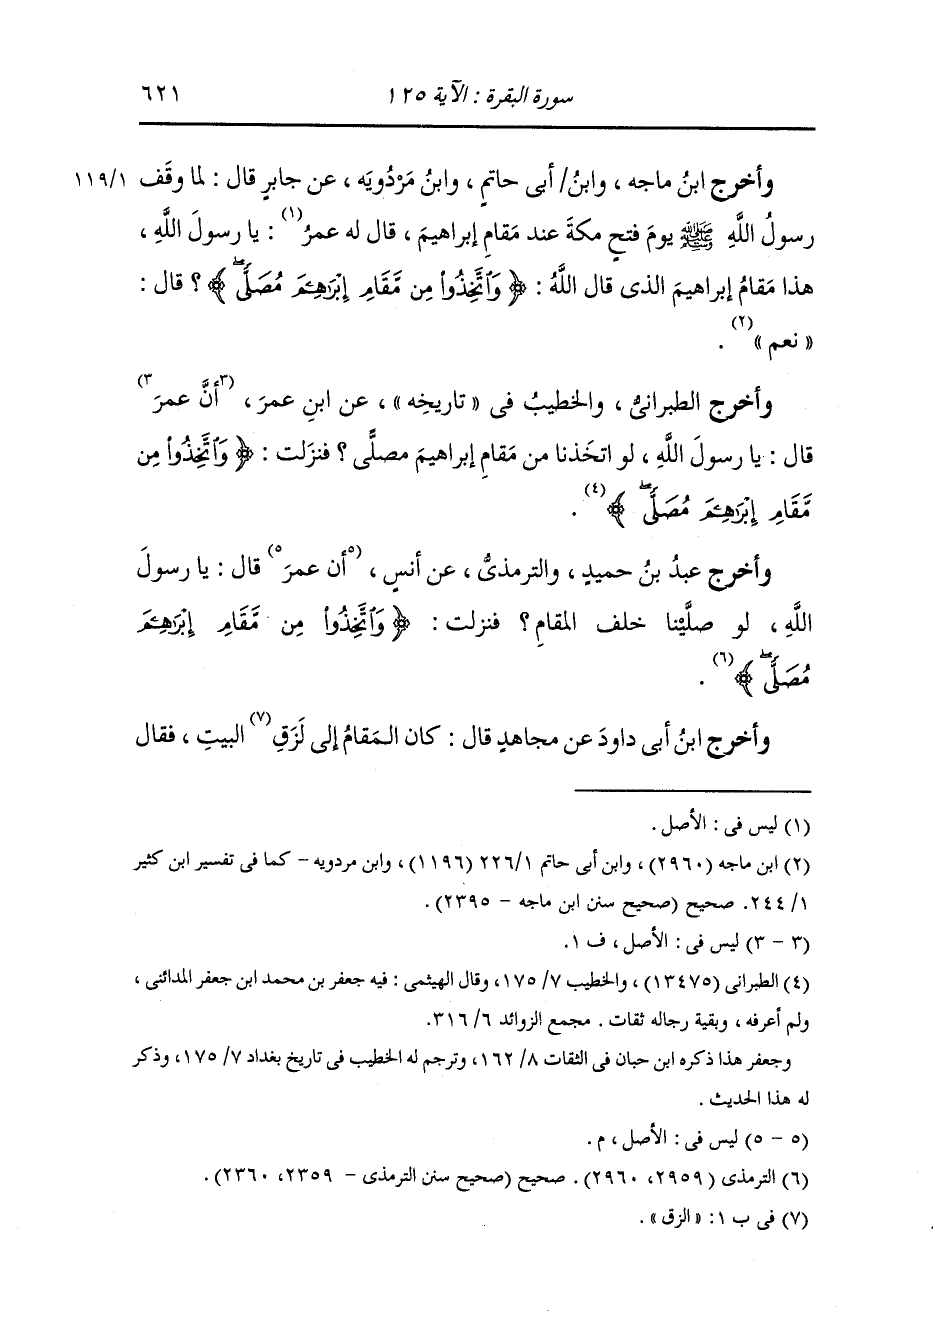 سورة البقرة : الآية ١٢٥ ٦٢١
وأخرج ابنُ ماجه ، وابنُ/ أبى حاتمٍ ، وابنُ مَرْدُويَه ، عن جابرٍ قال : لما وقَف ١١٩/١
رسولُ اللَّهِ ﷺ يومَ فتحِ مكةَ عند مَقامِ إبراهيمَ ، قال له عمرُ(١) : يا رسولَ اللَّهِ ،
هذا مَقامُ إبراهيمَ الذى قال اللَّهُ : ﴿ وَٱتَّخِذُوا۟ مِن مَّقَامِ إِبْرَٰهِـۧمَ مُصَلًّىۖ ﴾ ؟ قال :
« نعم »(٢) .
وأخرج الطبرانىُّ ، والخطيبُ فى « تاريخِه » ، عن ابنِ عمرَ ، (٣أنَّ عمرَ٣)
قال : يا رسولَ اللَّهِ ، لو اتخَذنا من مَقامِ إبراهيمَ مصلًّى ؟ فنزَلت : ﴿ وَٱتَّخِذُوا۟ مِن
مَّقَامِ إِبْرَٰهِـۧمَ مُصَلًّىۖ ﴾(٤) .
وأخرج عبدُ بنُ حميدٍ ، والترمذىُّ ، عن أنسٍ ، (٥أن عمرَ٥) قال : يا رسولَ
اللَّهِ ، لو صلَّيْنا خلف المقامِ ؟ فنزلت : ﴿ وَٱتَّخِذُوا۟ مِن مَّقَامِ إِبْرَٰهِـۧمَ
مُصَلًّىۖ ﴾(٦) .
وأخرج ابنُ أبى داودَ عن مجاهدٍ قال : كان المَقامُ إلى لَزَقِ(٧) البيتِ ، فقال
(١) ليس فى : الأصل .
(٢) ابن ماجه (٢٩٦٠) ، وابن أبى حاتم ٢٢٦/١ (١١٩٦) ، وابن مردويه – كما فى تفسير ابن كثير
٢٤٤/١. صحيح (صحيح سنن ابن ماجه – ٢٣٩٥) .
(٣ – ٣) ليس فى : الأصل ، ف ١.
(٤) الطبرانى (١٣٤٧٥) ، والخطيب ٧/ ١٧٥، وقال الهيثمى : فيه جعفر بن محمد ابن جعفر المدائنى ،
ولم أعرفه ، وبقية رجاله ثقات . مجمع الزوائد ٦/ ٣١٦.
وجعفر هذا ذكره ابن حبان فى الثقات ٨/ ١٦٢، وترجم له الخطيب فى تاريخ بغداد ٧/ ١٧٥، وذكر
له هذا الحديث .
(٥ – ٥) ليس فى : الأصل ، م .
(٦) الترمذى (٢٩٥٩، ٢٩٦٠) . صحيح (صحيح سنن الترمذى – ٢٣٥٩، ٢٣٦٠) .
(٧) فى ب ١: « الزق » .